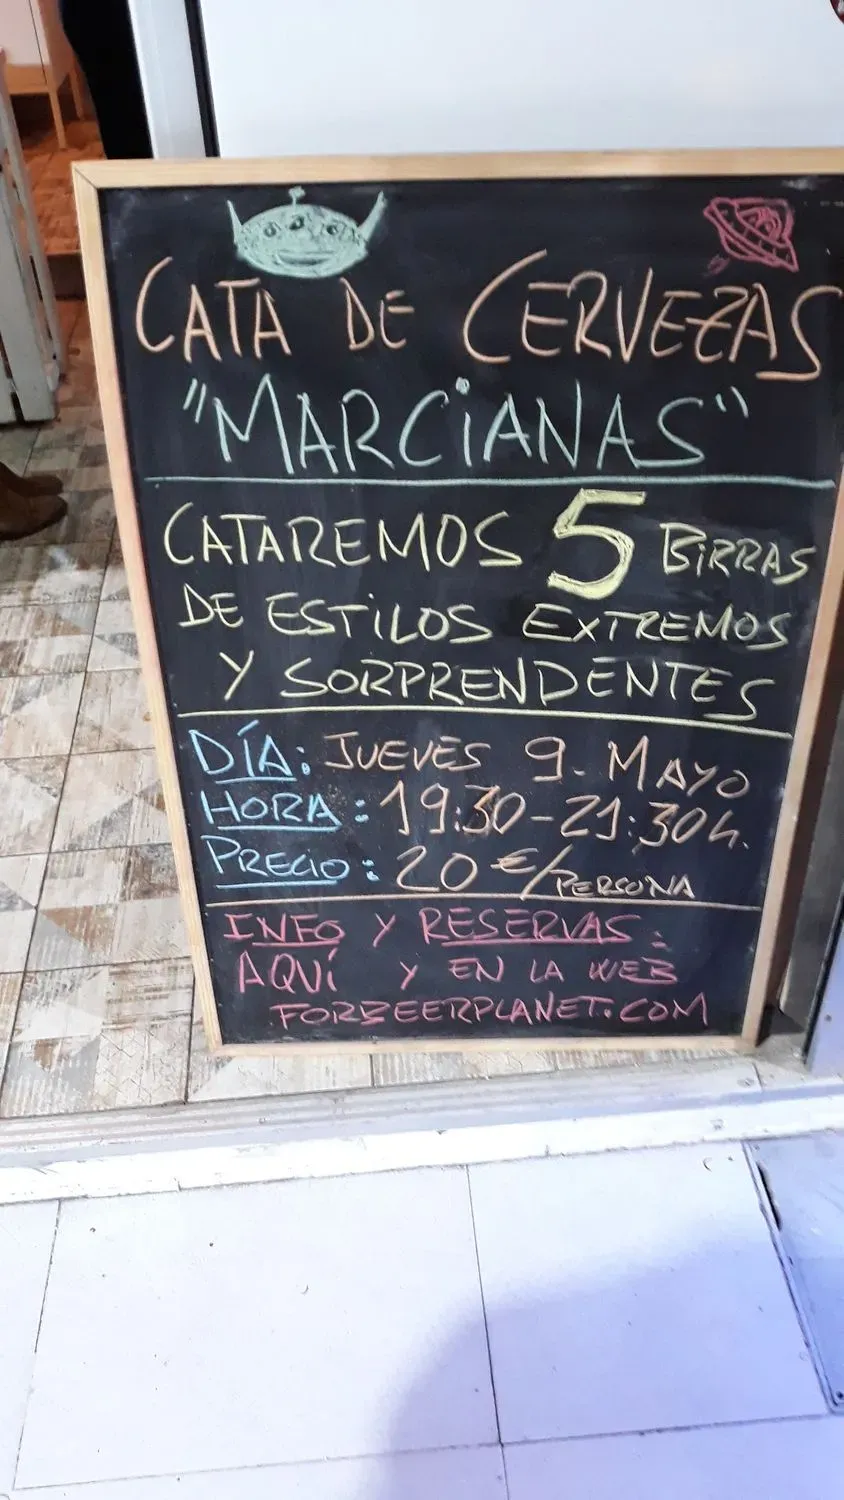 CATA DE CERVEZAS
"MARCiANAS"
CATAREMOS 5 BiRRAS
DE ESTiLOS EXTREMOS
Y SORPRENDENTES
DÍA: JUEVES 9. MAYO
HORA: 19:30-21:30h.
PRECIO: 20€/PERSONA
INFO Y RESERVAS:
AQUí Y EN LA WEB
FORBEERPLANET.COM